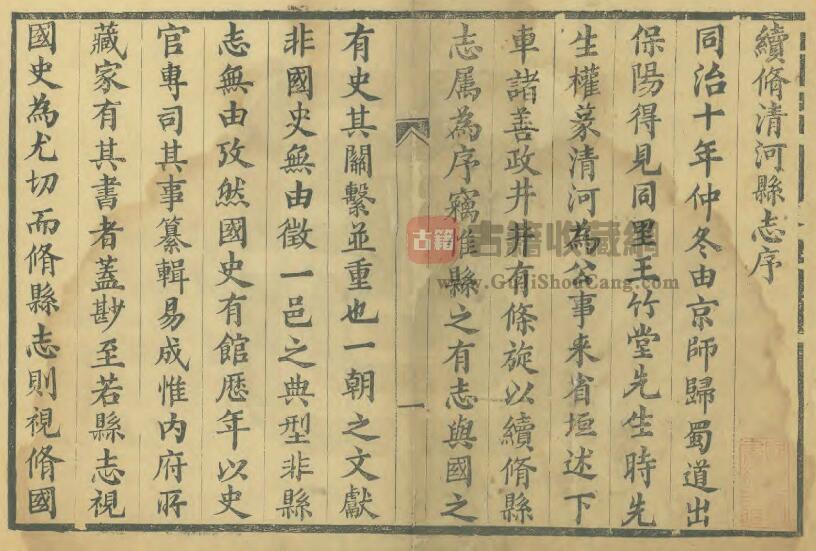 續脩清河縣志序
同治十年仲冬由京師歸蜀道出
保陽得見同里王竹堂先生時先
生權篆清河為公事来省垣述下
車諸善政井井有條旋以續脩縣
志属為序竊惟縣之有志與國之
一
有史其關繫並重也一朝之文獻
非國史無由徵一邑之典型非縣
志無由攷然國史有館歴年以史
官専司其事纂輯易成惟内府所
藏家有其書者蓋尠至若縣志視
國史為尤切而脩縣志則視脩國
古籍
古籍收藏網
www.GuJiShouCang.com